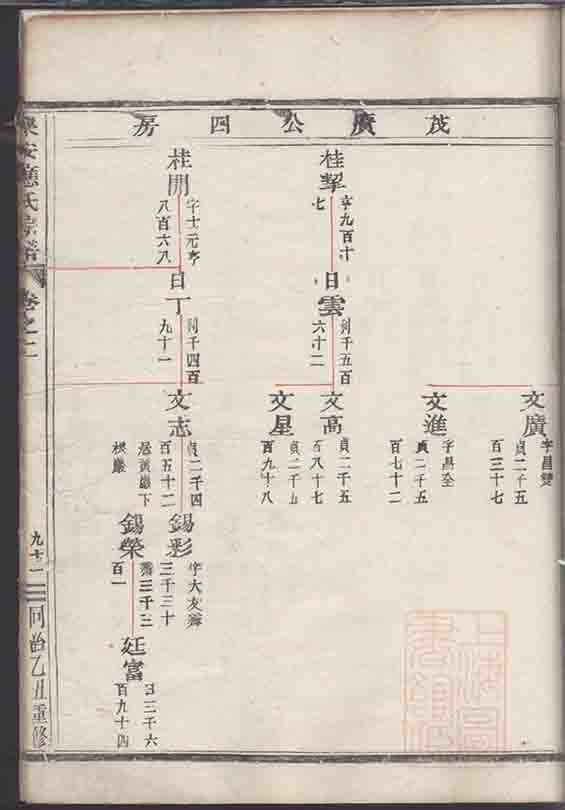 茂廣公四房
文廣
字昌雙
貞二千五
百三十七
文進
字昌全
貞二千五
百七十二
桂挈
亨九百十
七
日雲
利千五百
六十二
文高
貞二千五
百八十七
文星
貞二千五
百九十八
桂開
字士元亨
八百六八
日丁
利千四百
九十一
文志
貞二千四
百五十二
居黃巖下
錫彩
字大友舜
三千三十
錫榮
三千三
百一
廷富
日三千六
百九十四
應氏宗譜
卷之二
九十二
同治乙丑重修
上海圖書館